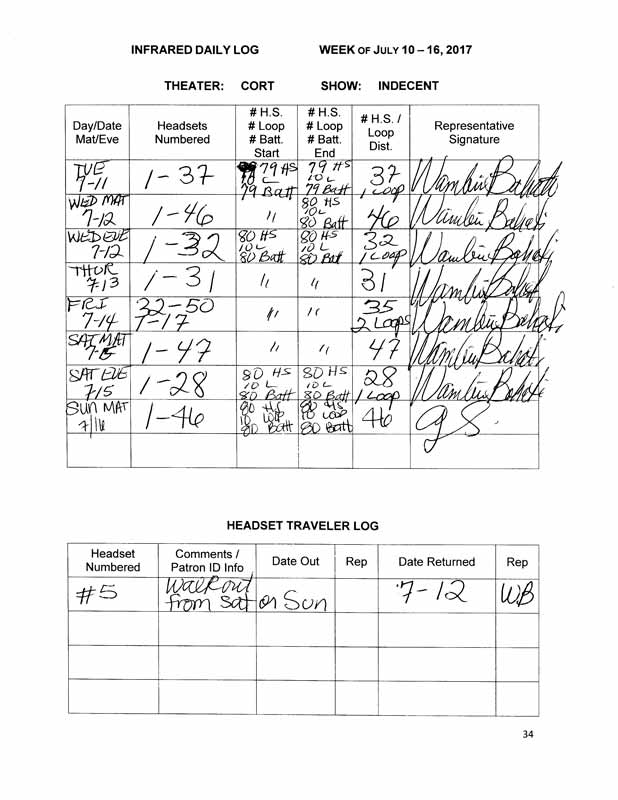 INFRARED DAILY LOG WEEK OF JULY 10 – 16, 2017
THEATER: CORT SHOW: INDECENT
Day/Date Mat/Eve Headsets Numbered # H.S. # Loop # Batt. Start # H.S. # Loop # Batt. End # H.S. / Loop Dist. Representative Signature
TUE 7-11 1-37 79 HS 10 L 79 Batt 79 HS 10 L 79 Batt 37 1 Loop Wambui Bahati
WED MAT 7-12 1-46 " 80 HS 10L 80 Batt 46 Wambui Bahati
WED EVE 7-12 1-32 80 HS 10 L 80 Batt 80 HS 10 L 80 Bat 32 1 Loop Wambui Bahati
THUR 7-13 1-31 " " 31 Wambui Bahati
FRI 7-14 32-50 7-17 " " 35 2 Loops Wambui Bahati
SAT MAT 7-15 1-47 " " 47 Wambui Bahati
SAT EVE 7/15 1-28 80 HS 10 L 80 Batt 80 HS 10 L 80 Batt 28 1 Loop Wambui Bahati
SUN MAT 7/16 1-46 80 HS 10 Loop 80 Batt 80 HS 10 Loop 80 Batt 46 g S.
HEADSET TRAVELER LOG
Headset Numbered Comments / Patron ID Info Date Out Rep Date Returned Rep
#5 Walkout from Sat or Sun 7-12 WB
34